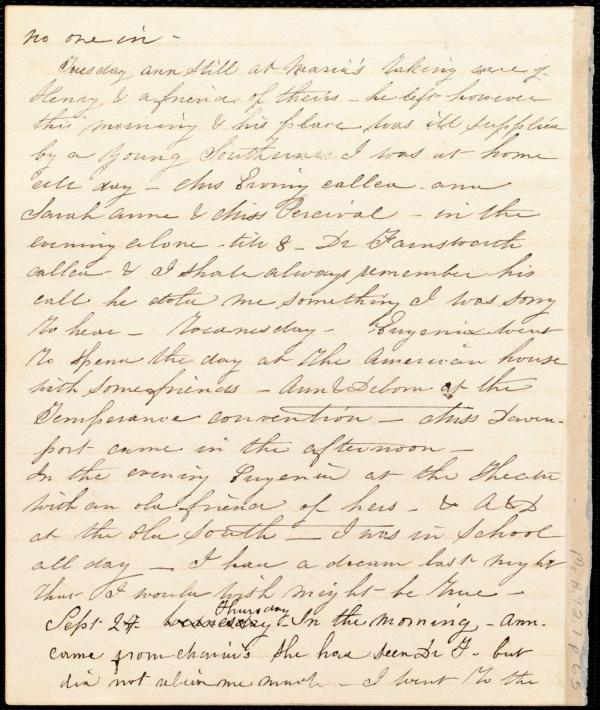 no one in -
Tuesday, ann still at Maria's taking care of
Henry, & a friend of theirs - he left however
this morning & his place was ill supplied
by a young Southerner I was at home
all day - Mrs Ewing called - ann
Sarah anne & Miss Percival - in the
evening alone - till 8 - Dr Farnsworth
called & I shall always remember his
call he told me something I was sorry
to hear - Wednesday - Eugenia went
to spend the day at the American house
with some friends - Ann & Deborn at the
Temperance convention - Miss Daven-
port came in the afternoon -
In the evening Eugenia at the Theatre
with an old friend of hers - & A & D
at the Old South - I was in School
all day - I had a dream last night
that I would wish might be true -
Sept 24. Thursday - In the morning - Ann.
came from Maria's She had seen Dr F - but
did not relieve me much - I went to the